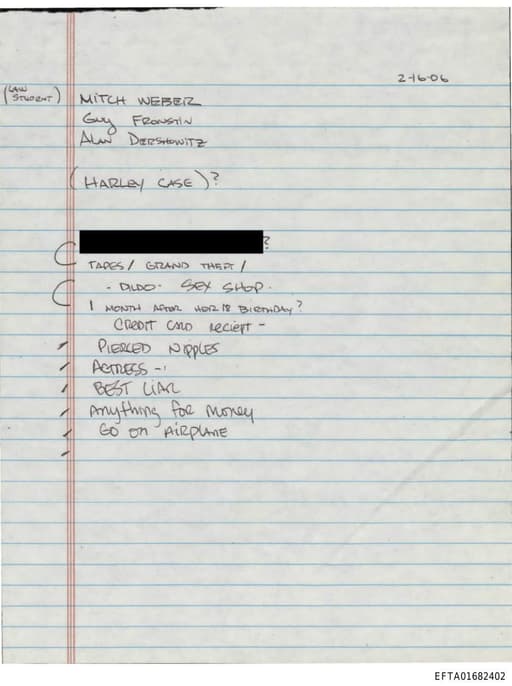 2-16-06
(LAW STUDENT) MITCH WEBER
Guy FRONSTIN
ALAN DERSHOWITZ
(HARLEY CASE)?
?
TAPES/ GRAND THEFT/
- DILDO- SEX SHOP-
1 MONTH AFTER HER 18 BIRTHDAY?
CREDIT CARD RECIEPT -
PIERCED NIPPLES
ACTRESS -
BEST LIAR
Anything for money
GO ON AIRPLANE
EFTA01682402